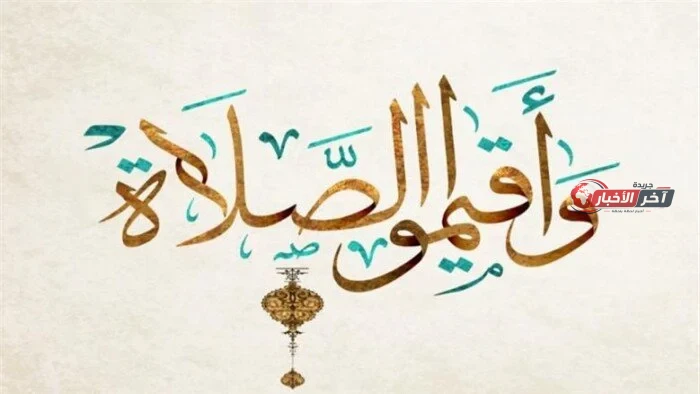 وَأَقِيمُوا الصَّلَاةَ
جريدة
آخر الأخبار